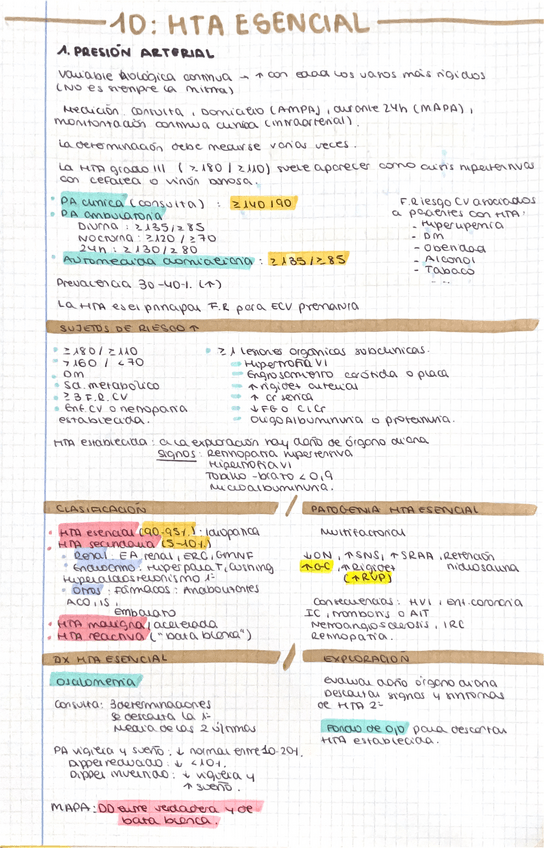 10: HTA ESENCIAL
1. PRESIÓN ARTERIAL
Variable biológica continua → ↑ con edad los vasos más rígidos
(NO es siempre la misma)
Medición consulta, Domicilio (AMPA), durante 24h (MAPA),
monitorización continua clínica (intraarterial).
La determinación debe medirse varias veces.
La HTA grado III (≥180/≥110) suele aparecer como crisis hipertensivas
con cefalea o visión borrosa.
PA clínica (consulta) : ≥140/90
PA ambulatoria
Diurna : ≥135/≥85
Nocturna : ≥120/≥70
24h : ≥130/≥80
Automedida domiciliaria : ≥135/≥85
F. Riesgo CV asociados
a pacientes con HTA:
- Hiperlipemia
- DM
- Obesidad
- Alcohol
- Tabaco
...
Prevalencia 30-40%. (↑)
La HTA es el principal F.R para ECV prematura
SUJETOS DE RIESGO ↑
≥180/≥110
>160/<70
DM
Sd. metabólico
≥3 F.R.CV
Enf. CV o nefropatía
establecida.
≥1 lesiones orgánicas subclínicas.
Hipertrofia VI
Engrosamiento carótida o placa
↑ rigidez arterial
↑ Cr sérica
↓ FG o ClCr
Oligoalbuminuria o proteinuria.
HTA establecida: a la exploración hay daño de órgano diana
Signos: Retinopatía hipertensiva
Hipertrofia VI
Tobillo-brazo <0,9
Microalbuminuria.
CLASIFICACIÓN
HTA esencial (90-95%): idiopática
HTA secundaria (5-10%)
Renal: EA, renal, ERC, GMNF
Endocrino: Hiperpara T, Cushing
Hiperaldosteronismo 1º
Otros: Fármacos: Anabolizantes
ACO, IS,
Embarazo
HTA maligna/acelerada
HTA reactiva ("bata blanca")
PATOGENIA HTA ESENCIAL
Multifactorial
↓ON, ↑SNS, ↑SRAA, Retención
hidrosalina
↑GC, ↑Rigidez
(↑RVP)
Consecuencias: HVI, enf. coronaria
IC, trombosis o AIT
Nefroangiosclerosis, IRC
Retinopatía.
DX HTA ESENCIAL
Oscilometría
Consulta: 3 determinaciones
se descarta la 1º
Media de las 2 últimas
PA vigilia y sueño: ↓ normal entre 10-20%.
dipper reducido: ↓ <10%.
dipper invertido: ↓ vigilia y
↑ sueño.
MAPA: DD entre verdadera y de
bata blanca.
EXPLORACIÓN
Evaluar daño órgano diana
Descartar signos y síntomas
de HTA 2º
Fondo de ojo para descartar
HTA establecida.